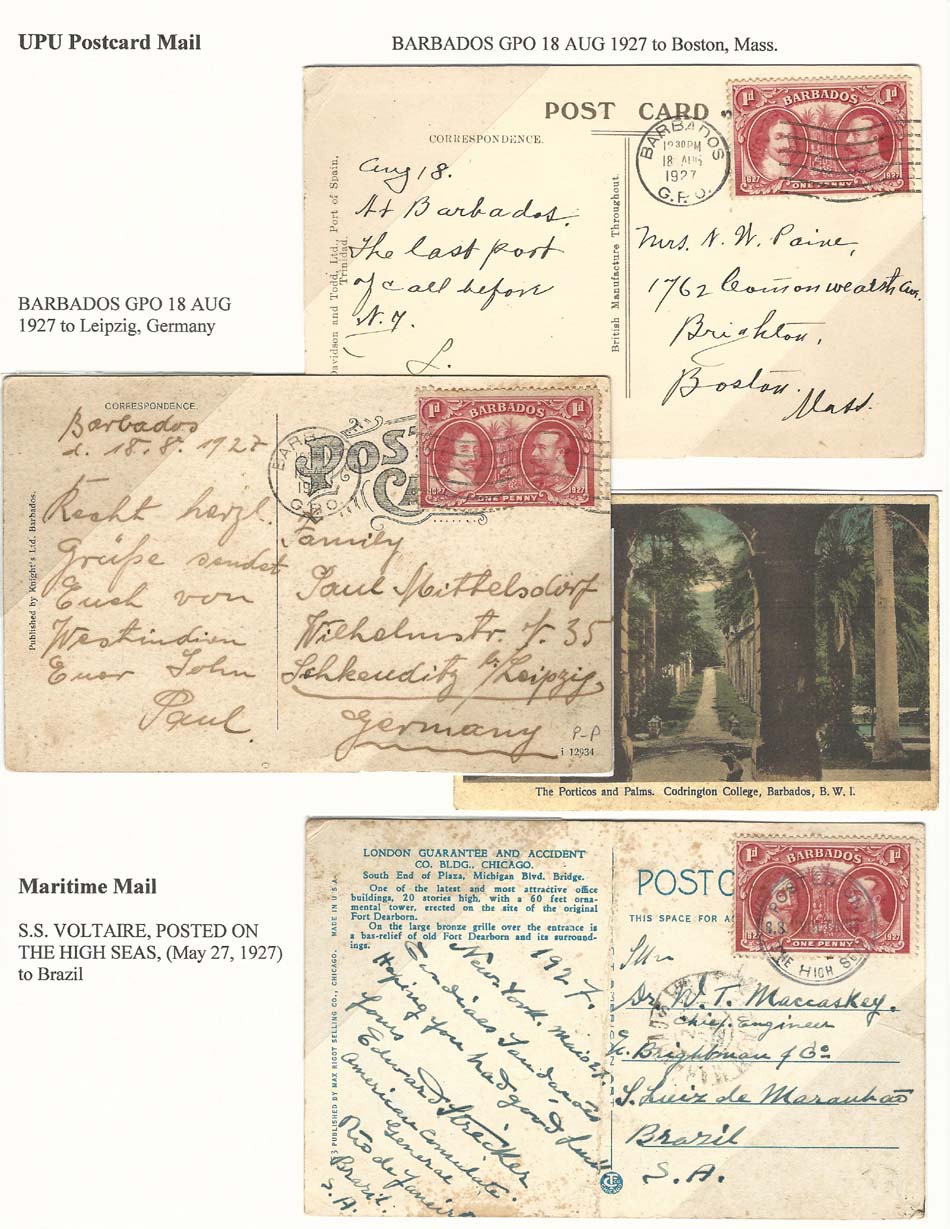 UPU Postcard Mail
BARBADOS GPO 18 AUG 1927 to Boston, Mass.
POST CARD
CORRESPONDENCE.
Davidson and Todd, Ltd., Port of Spain,
Trinidad.
British Manufacture Throughout.
BARBADOS
12 30 PM
18 AUG
1927
G.P.O.
1d BARBADOS 1d
1627 ONE PENNY 1927
Aug 18.
At Barbados.
The last port
of call before
N.Y.
L.
Mrs. N. W. Paine,
1762 Commonwealth Ave.
Brighton,
Boston.
Mass.
BARBADOS GPO 18 AUG
1927 to Leipzig, Germany
CORRESPONDENCE.
Published by Knight's Ltd. Barbados.
POS
CA
BARB
19
G.P.O.
1d BARBADOS 1d
1627 ONE PENNY 1927
Barbados
d. 18. 8. 1927
Recht herzl.
Grüße sendet
Euch von
Westindien
Euer John
Paul.
Family
Paul Mittelsdorf
Wilhelmstr. N. 35
Schkeuditz b/Leipzig
Germany
P-P
i 12934
The Porticos and Palms. Codrington College, Barbados, B. W. I.
Maritime Mail
S.S. VOLTAIRE, POSTED ON
THE HIGH SEAS, (May 27, 1927)
to Brazil
LONDON GUARANTEE AND ACCIDENT
CO. BLDG., CHICAGO.
South End of Plaza, Michigan Blvd. Bridge.
One of the latest and most attractive office
buildings, 20 stories high, with a 60 feet orna-
mental tower, erected on the site of the original
Fort Dearborn.
On the large bronze grille over the entrance is
a bas-relief of old Fort Dearborn and its surround-
ings.
PUBLISHED BY MAX RIGOT SELLING CO., CHICAGO. MADE IN U.S.A.
POST C
THIS SPACE FOR A
1d 1d
1627 ONE PENNY 1927
POSTED ON
S.S.
THE HIGH SE
1927.
New York.
Hoping you had good luck
Yours
Edward Strecker
American Consulate
General
Rio de Janeiro
Brazil.
S.A.
Dr. W. T. Maccaskey.
Chief Engineer
Brightman & Co
S. Luiz de Maranhao
Brazil
S. A.